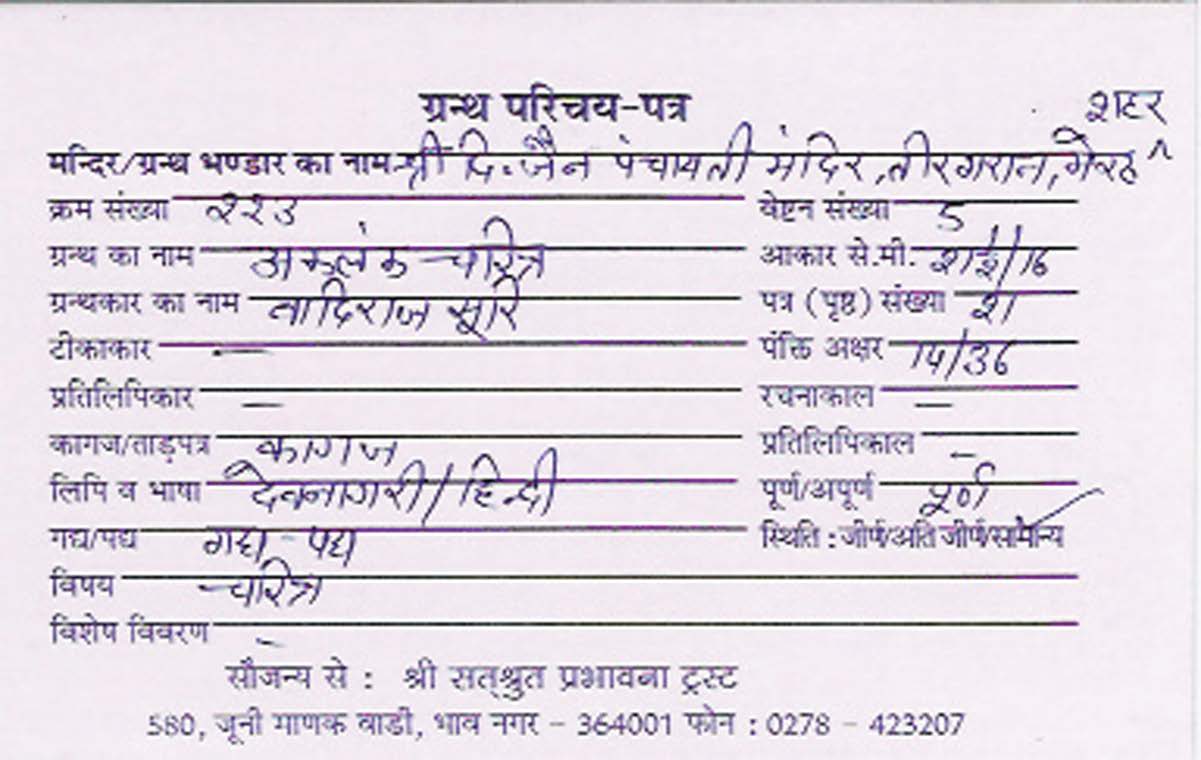 ग्रन्थ परिचय-पत्र
शहर
मन्दिर/ग्रन्थ भण्डार का नाम श्री दि. जैन पंचायती मंदिर, तीरगरान, मेरठ
क्रम संख्या २२३ वेष्टन संख्या 5
ग्रन्थ का नाम अकलंक चरित्र आकार से.मी.
ग्रन्थकार का नाम वादिराज सूरि पत्र (पृष्ठ) संख्या
टीकाकार — पंक्ति अक्षर 14/36
प्रतिलिपिकार — रचनाकाल —
कागज/ताड़पत्र कागज प्रतिलिपिकाल —
लिपि व भाषा देवनागरी/हिन्दी पूर्ण/अपूर्ण पूर्ण
गद्य/पद्य गद्य - पद्य स्थिति : जीर्ण/अति जीर्ण/सामान्य
विषय चरित्र
विशेष विवरण -
सौजन्य से : श्री सत्श्रुत प्रभावना ट्रस्ट
580, जूनी माणक वाडी, भाव नगर - 364001 फोन : 0278 - 423207